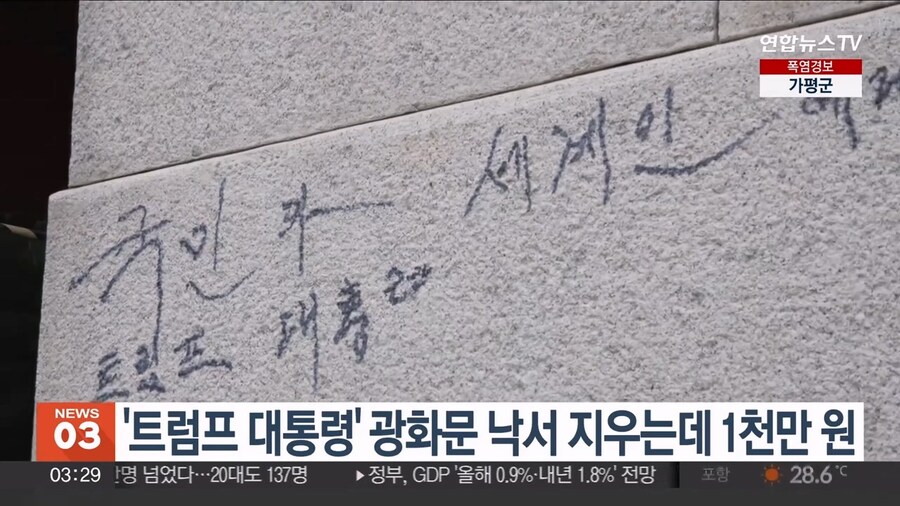 연합뉴스TV
폭염경보
가평군
국민과 세계인
트럼프 대통령
NEWS
03
'트럼프 대통령' 광화문 낙서 지우는데 1천만 원
03:29
만명 넘었다…20대도 137명
▶정부, GDP '올해 0.9%·내년 1.8%' 전망
포항
28.6℃